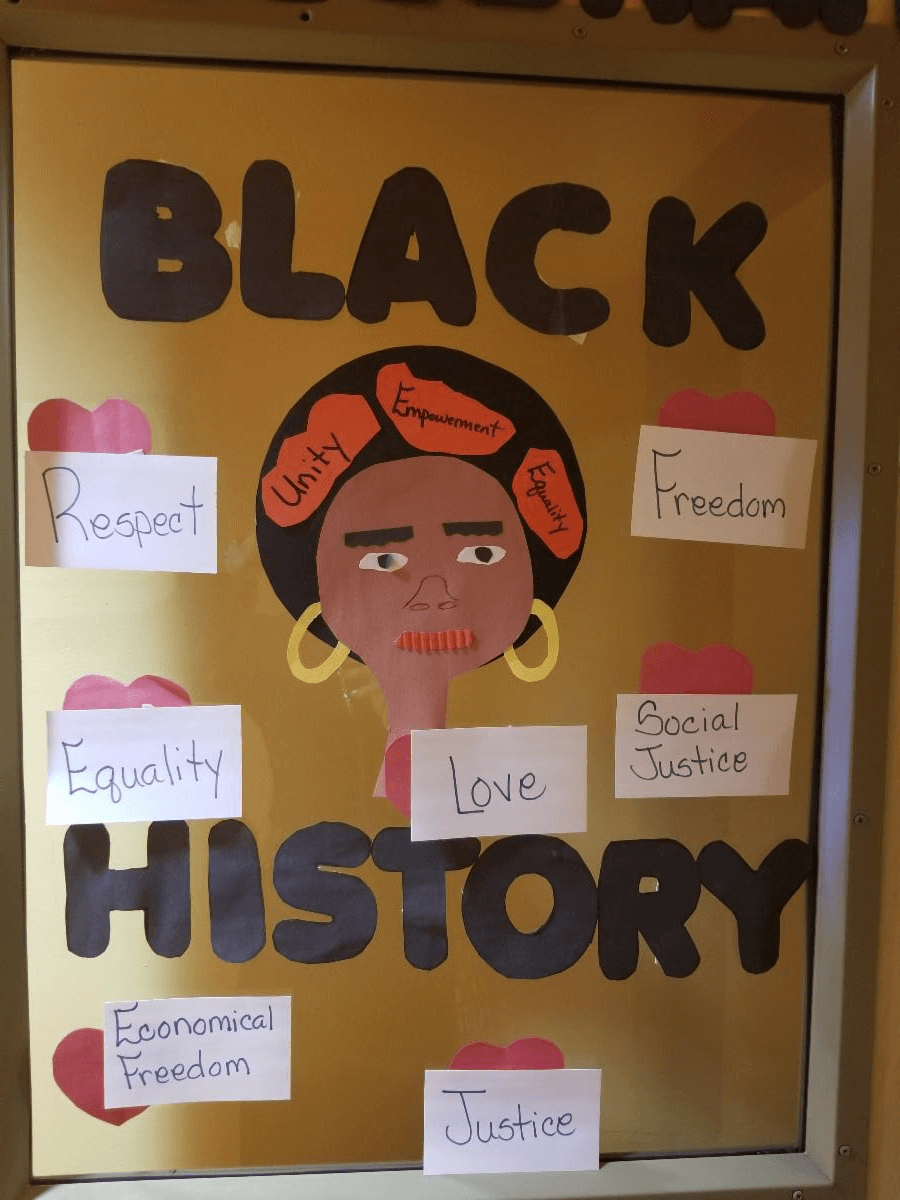 BLACK
Unity
Empowerment
Equality
Respect
Freedom
Equality
Love
Social
Justice
HISTORY
Economical
Freedom
Justice